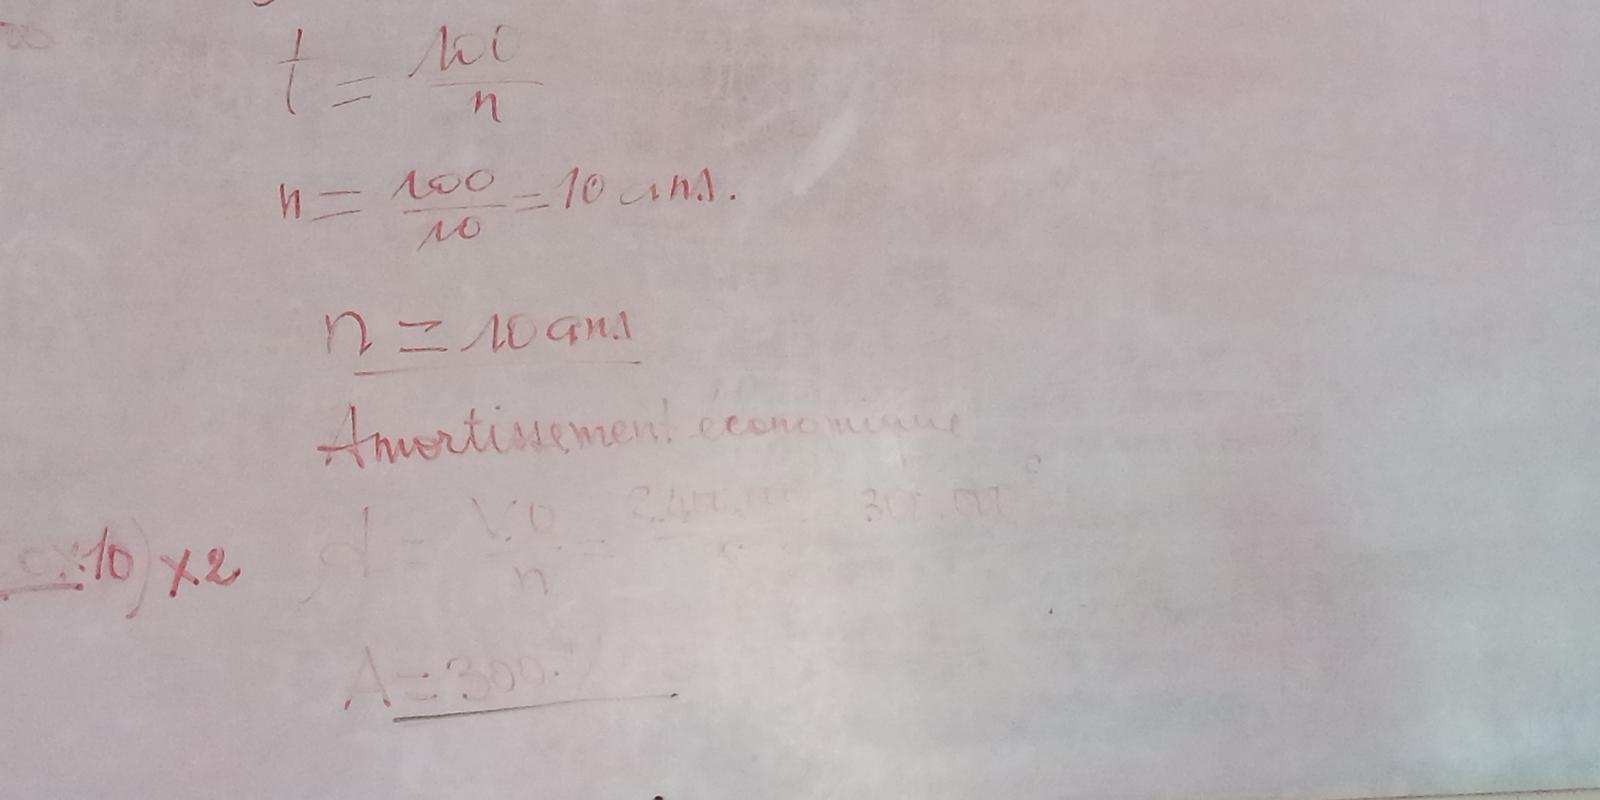 t = 100/n
n = 100/10 = 10 ans.
n = 10 ans
Amortissement économique
10) x 2
A = V.0/n =
A = 300.